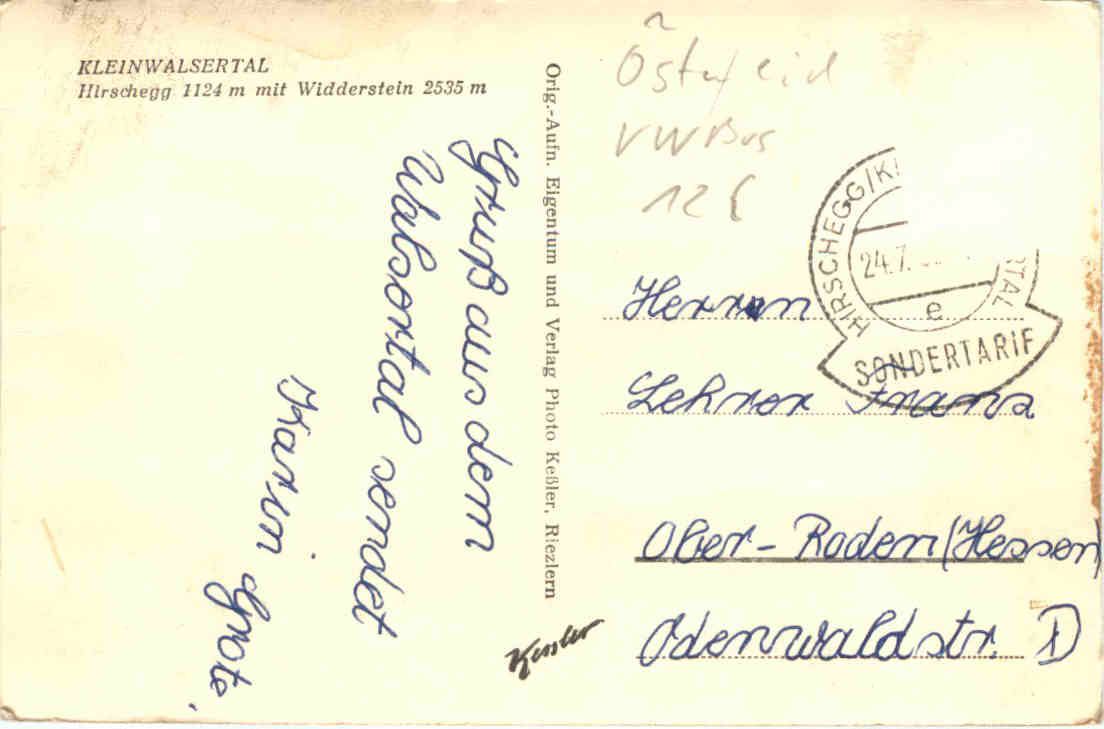 KLEINWALSERTAL
Hirschegg 1124 m mit Widderstein 2535 m
Gruß aus dem
Walsertal sendet
Karin Grote
Orig.-Aufn. Eigentum und Verlag Photo Keßler, Riezlern
Kessler
VW Bus
12 €
HIRSCHEGG/KL
RTAL
24.7.
e
SONDERTARIF
Herrn
Lehrer Franz
Ober-Roden (Hessen)
Odenwaldstr. D